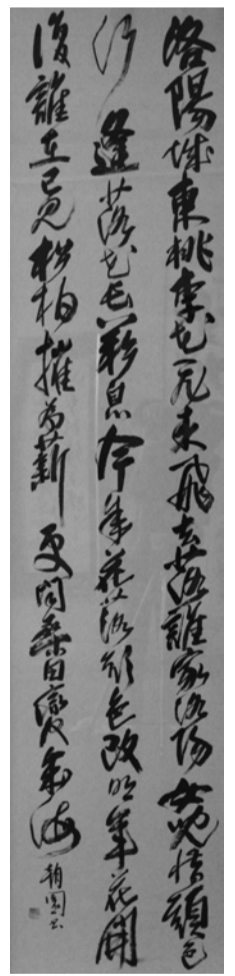 洛陽城東桃李花飛來飛去落誰家洛陽女兒惜顏色
行逢落花長歎息今年花落顏色改明年花開
復誰在已見松柏摧為薪更聞桑田變成海